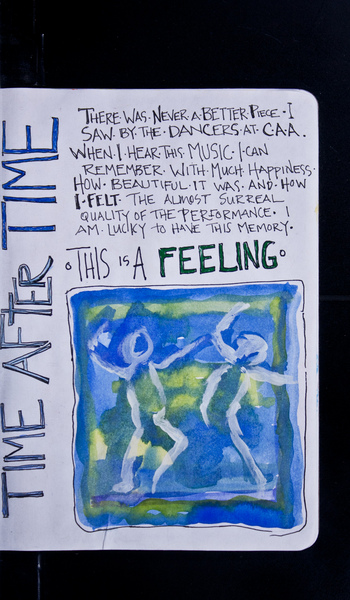 TIME AFTER TIME
THERE WAS NEVER A BETTER PIECE · I
SAW · BY · THE · DANCERS · AT · C.A.A.
WHEN · I · HEAR THIS MUSIC · I · CAN
REMEMBER · WITH · MUCH HAPPINESS ·
HOW · BEAUTIFUL · IT WAS · AND · HOW
I · FELT · THE ALMOST SURREAL
QUALITY OF THE PERFORMANCE · I
AM · LUCKY TO HAVE THIS MEMORY ·
THIS IS A FEELING